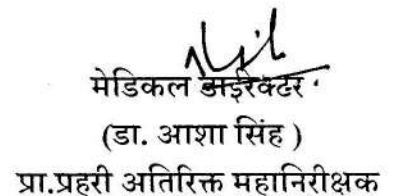 मेडिकल डाइरेक्टर
(डा. आशा सिंह )
प्रा.प्रहरी अतिरिक्त महानिरीक्षक